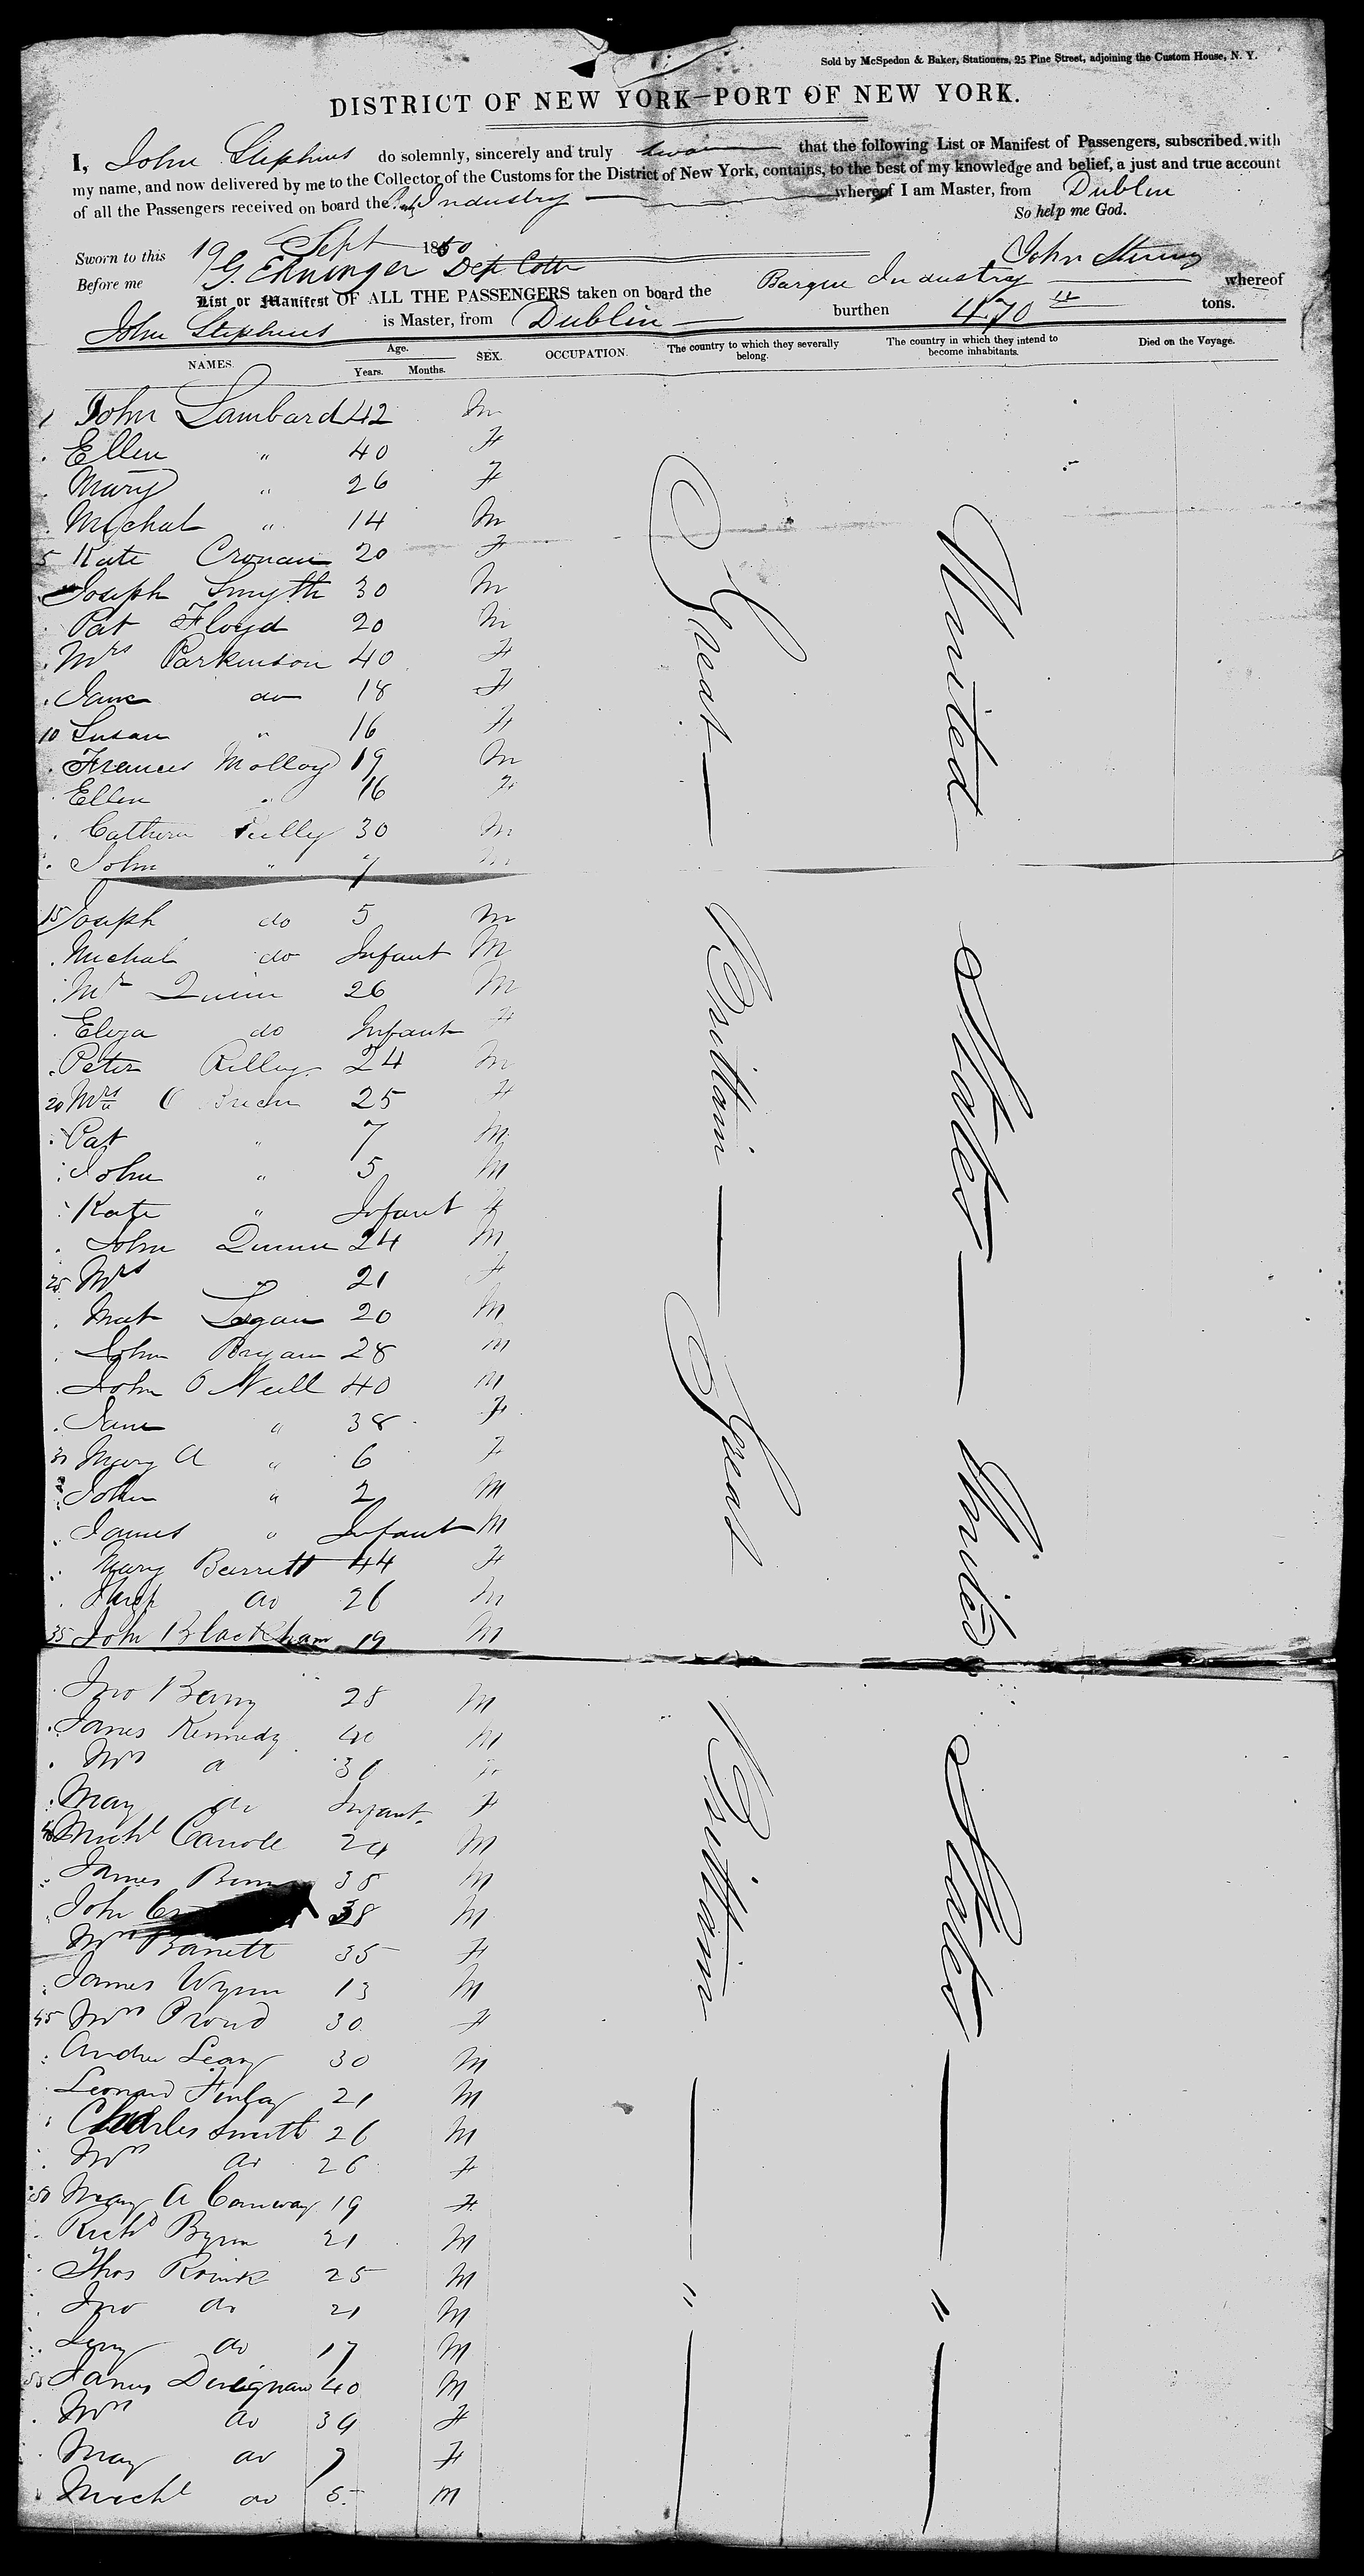 Sold by McSpedon & Baker, Stationers, 25 Pine Street, adjoining the Custom House, N. Y.
DISTRICT OF NEW YORK—PORT OF NEW YORK.
I, John Stephens do solemnly, sincerely and truly swear that the following List or Manifest of Passengers, subscribed with
my name, and now delivered by me to the Collector of the Customs for the District of New York, contains, to the best of my knowledge and belief, a just and true account
of all the Passengers received on board the Industry whereof I am Master, from Dublin
So help me God.
Sworn to this 19 Sept 1850
Before me Dep Coll John
List or Manifest OF ALL THE PASSENGERS taken on board the Barque Industry whereof
John Stephens is Master, from Dublin burthen 470 tons.
NAMES. Age. Years. Months. SEX. OCCUPATION. The country to which they severally belong. The country in which they intend to become inhabitants. Died on the Voyage.
1 John Lambard 42 M
Ellen " 40 F
Mary " 26 F
Michal " 14 M
5 Kate Cronan 20 F
Joseph Smyth 30 M
Pat Floyd 20 M
Mrs Parkinson 40 F
Jane do 18 F
10 Susan " 16 F
Frances Molloy 19 M
Ellen " 16 F
Cathern 30 M
John " 7 M
15 Joseph do 5 M
Michal do Infant M
Mr Quinn 26 M
Eliza do Infant F
Peter Rilley 24 M
20 Mrs O Brien 25 F
Pat " 7 M
John " 5 M
Kate " Infant F
John Quinn 24 M
25 Mrs " 21 F
Mat Logan 20 M
John Bryan 28 M
John O Neill 40 M
Jane " 38 F
30 Mary A " 6 F
John " 2 M
James " Infant M
Mary Barrett 44 F
do 26 M
35 John Blackham 19 M
Jno Barry 28 M
James Kennedy 40 M
Mrs 30 F
May do Infant F
40 Michl Carroll 24 M
James 35 M
John 38 M
Mrs Barrett 35 F
James Wynn 13 M
45 Mrs Proud 30 F
Andrew Leary 30 M
Leonard Finlay 21 M
Charles Smith 26 M
Mrs do 26 F
50 Mary A Conway 19 F
Richd Byrn 21 M
Thos 25 M
Jno do 21 M
do 17 M
55 James Duignan 40 M
Mrs do 39 F
May do 7 F
Michl do 5 M
Great Brittain Great Brittain "
United States United States "